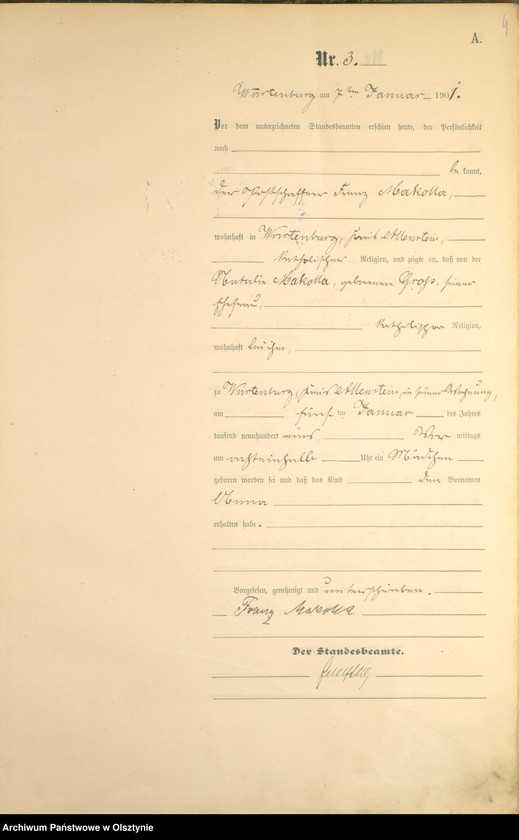 4
A.
Nr. 3.
Wartenburg am 7ten Januar 1901.
Vor dem unterzeichneten Standesbeamten erschien heute, der Persönlichkeit
nach
be kannt,
der Franz Makolla,
wohnhaft in Wartenburg, Kreis Allenstein,
katholischer Religion, und zeigte an, daß von der
Natalie Makolla, geborenen Groß, seiner
Ehefrau,
katholischer Religion,
wohnhaft bei ihm,
zu Wartenburg, Kreis Allenstein, in seiner Wohnung,
am fünf ten Januar des Jahres
tausend neunhundert eins, Vor mittags
um achteinhalb Uhr ein Mädchen
geboren worden sei und daß das Kind den Vornamen
Anna
erhalten habe.
Vorgelesen, genehmigt und unterschrieben.
Franz Makolla
Der Standesbeamte.
Archiwum Państwowe w Olsztynie